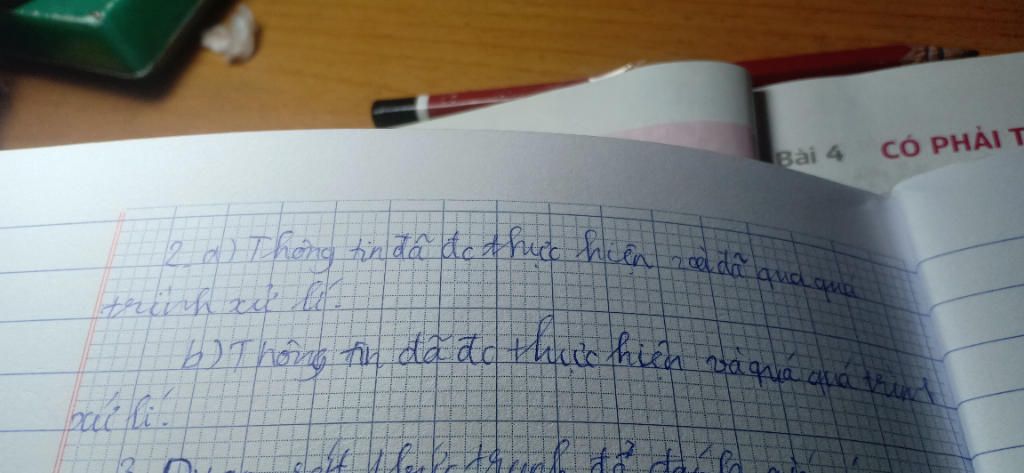 Bài 4 CÓ PHẢI T
2. a) Thông tin đã đc thực hiện và đã qua quá
trình xử lí.
b) Thông tin đã đc thực hiện và quá quá trình
xử lí.